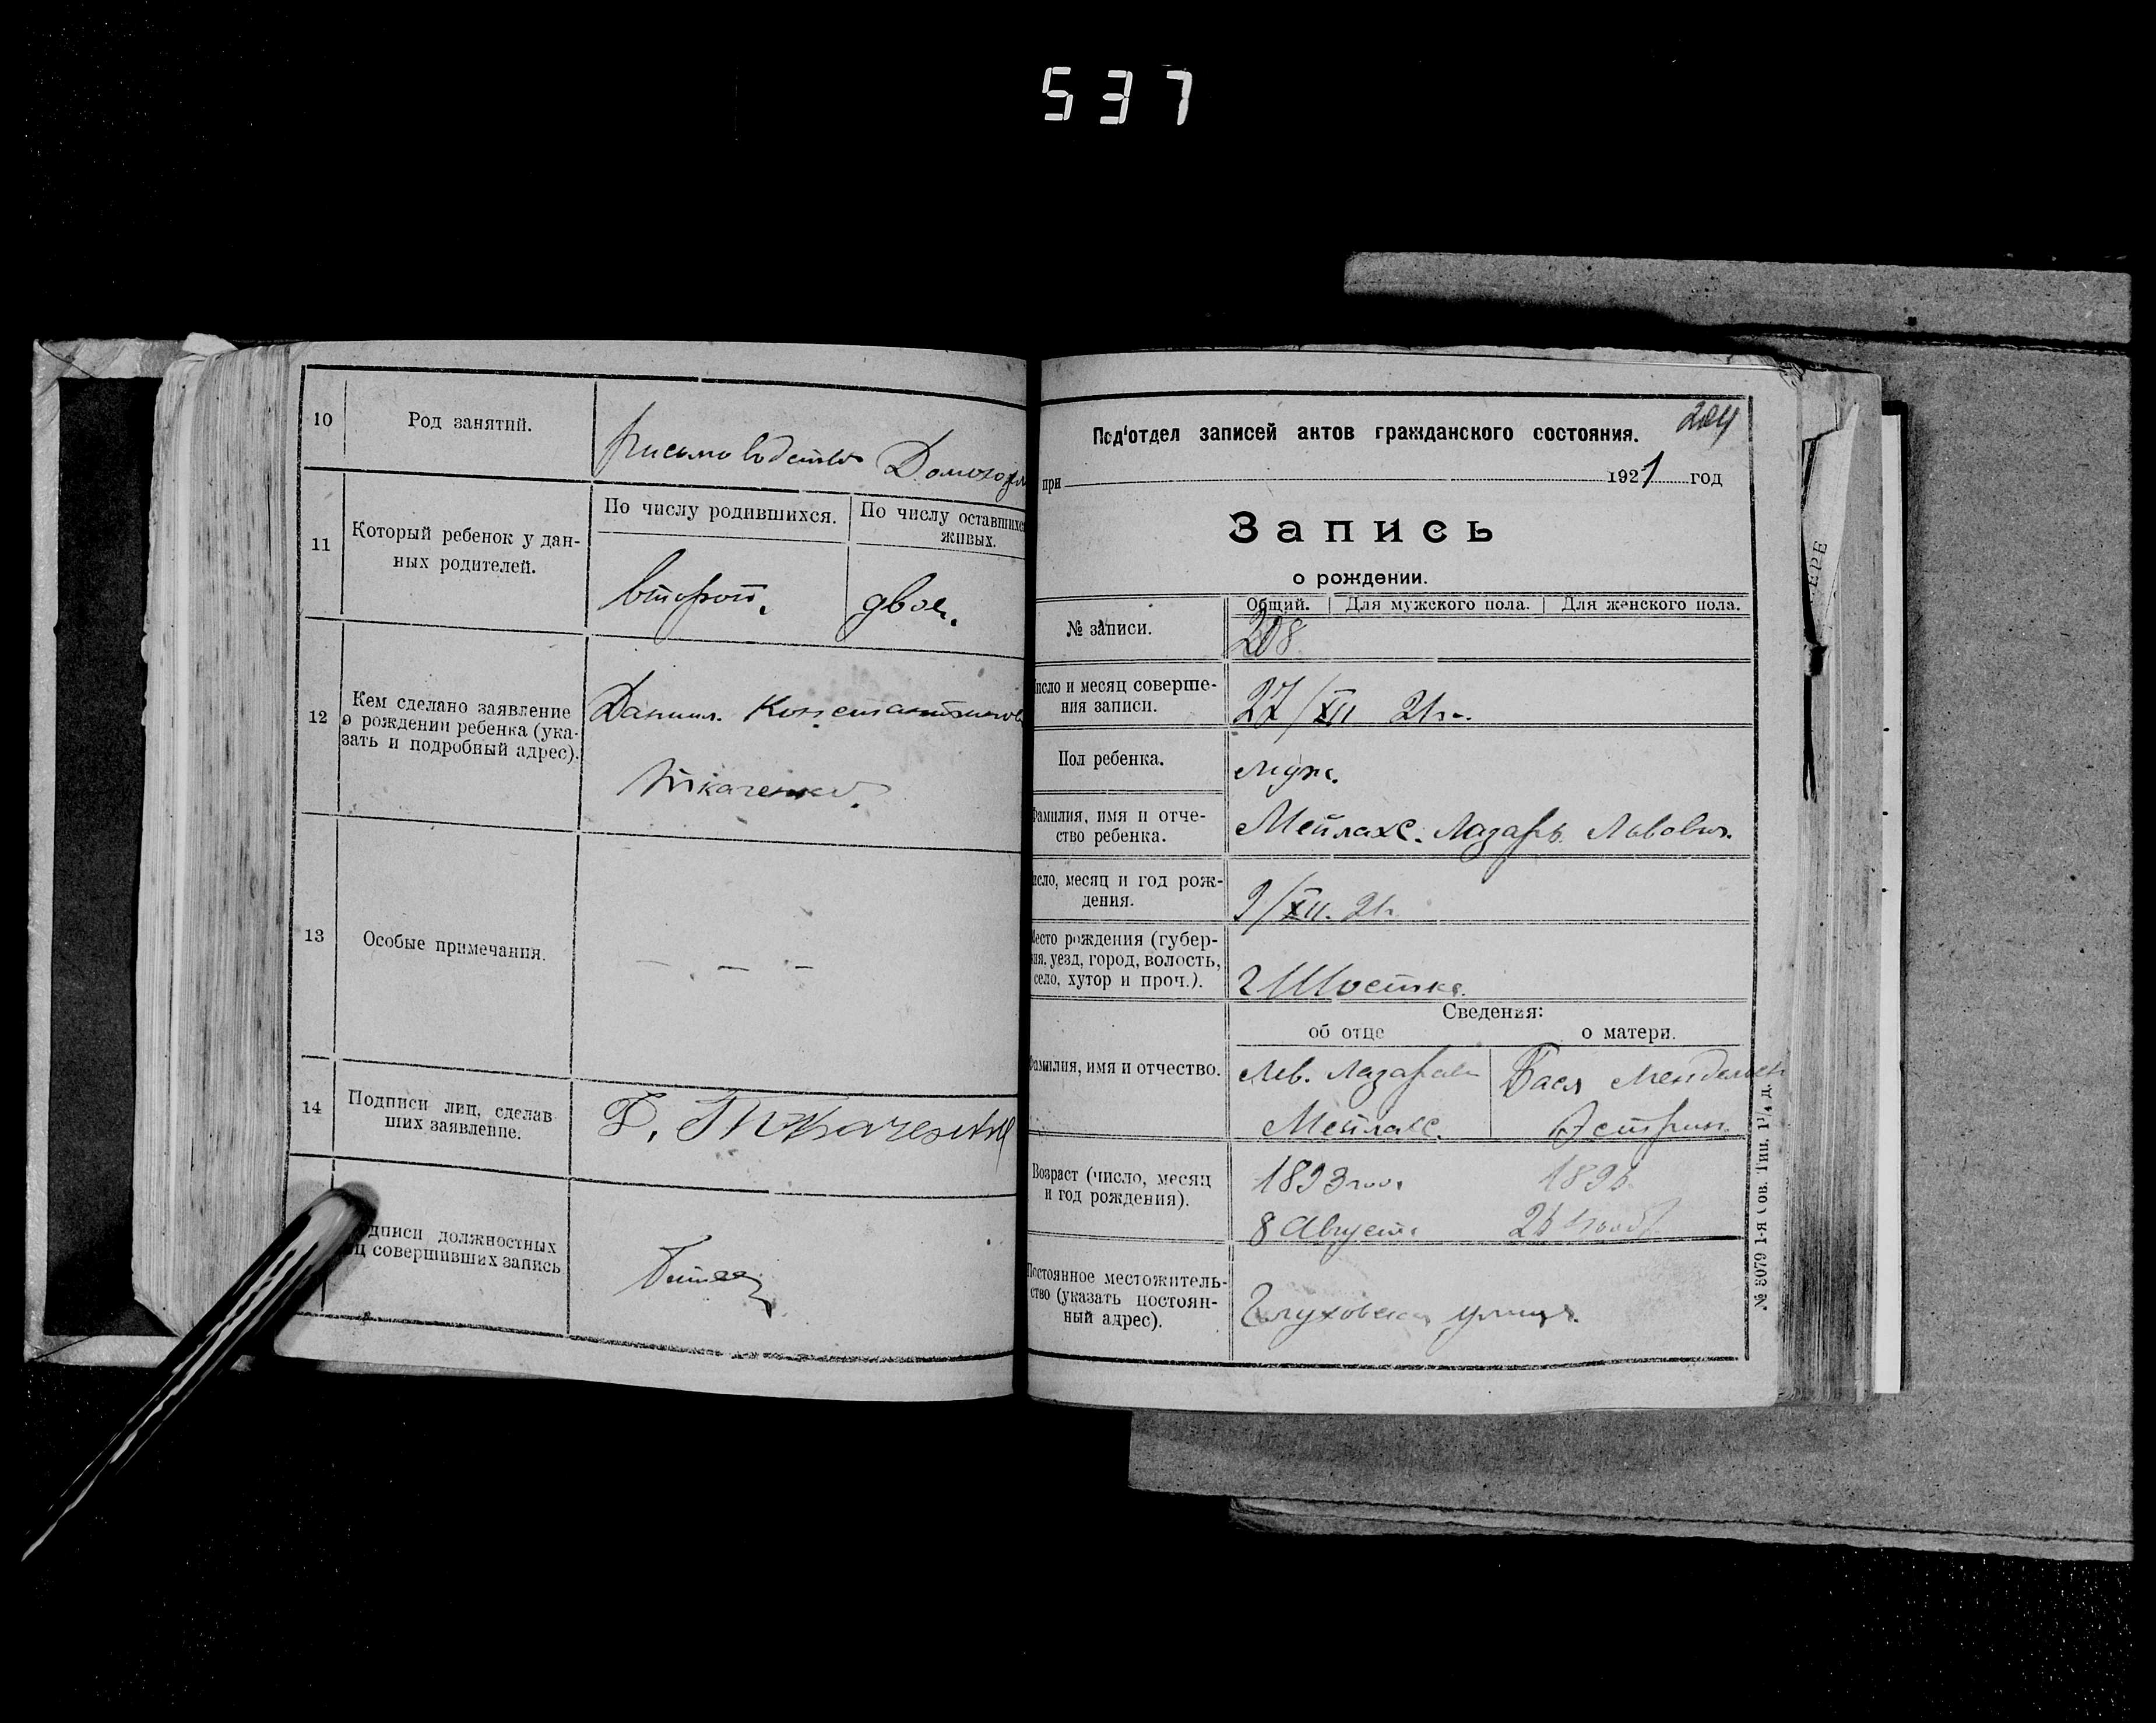 537
10
Род занятий.
письмоводитель Домохоз
11
Который ребенок у дан-
ных родителей.
По числу родившихся.
По числу оставшихся
живых.
второй.
двое.
12
Кем сделано заявление
о рождении ребенка (ука-
зать и подробный адрес).
Даниил Константинов
Ткаченко.
13
Особые примечания.
— — –
14
Подписи лиц, сделав-
ших заявление.
Ткаченко
дписи должностных
ц совершивших запись
204
Под'отдел записей актов гражданского состояния.
при 1921 год
Запись
о рождении.
Общий. Для мужского пола. Для женского пола.
№ записи.
208
исло и месяц соверше-
ния записи.
27/XII 21 г.
Пол ребенка.
муж.
Фамилия, имя и отче-
ство ребенка.
Мейлахс. Лазарь Львович.
исло, месяц и год рож-
дения.
9/XII. 21 г.
Место рождения (губер-
ния, уезд, город, волость,
село, хутор и проч.).
г Шостка.
Сведения:
об отце
о матери.
Фамилия, имя и отчество.
Лев. Лазарев
Мейлахс.
Бася Мендел
Эстрин.
Возраст (число, месяц
и год рождения).
1893 год.
8 Августа
189
Постоянное местожитель-
ство (указать постоян-
ный адрес).
Глуховская улица.
№ 8079 1-я Сов. Тип. 1²/₄ д.